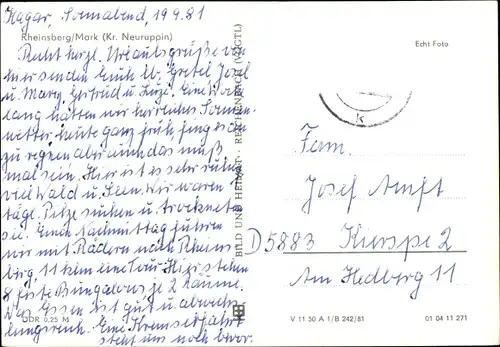 Kagar, Sonnabend, 19.9.81
Rheinsberg/Mark (Kr. Neuruppin)
Recht herzl. Urlaubsgrüße von
hier senden Euch lb. Gretel, Josef
u. Mary, Gertrud u. Luzie. Eine Woche
lang hatten wir herrliches Sonnen-
wetter heute ganz früh fing es an
zu regnen aber auch das muß
mal sein. Hier ist es sehr ruhig
viel Wald u. Seen. Wir waren
tägl. Pilze suchen u. trockneten
sie. Eine Nachmittag fuhren
wir mit Rädern nach Rheins-
berg, 11 klm eine Tour. Hier stehen
8 feste Bungalows je 2 Räume.
Das Essen ist gut u. abwechs-
lungsreich. Eine Kremserfahrt
steht uns noch bevor.
DDR 0,25 M
BILD UND HEIMAT · REICHENBACH (VOGTL)
Echt Foto
k
Fam.
Josef
D 5883 Kierspe 2
Am Hedberg 11
V 11 50 A 1/B 242/81
01 04 11 271